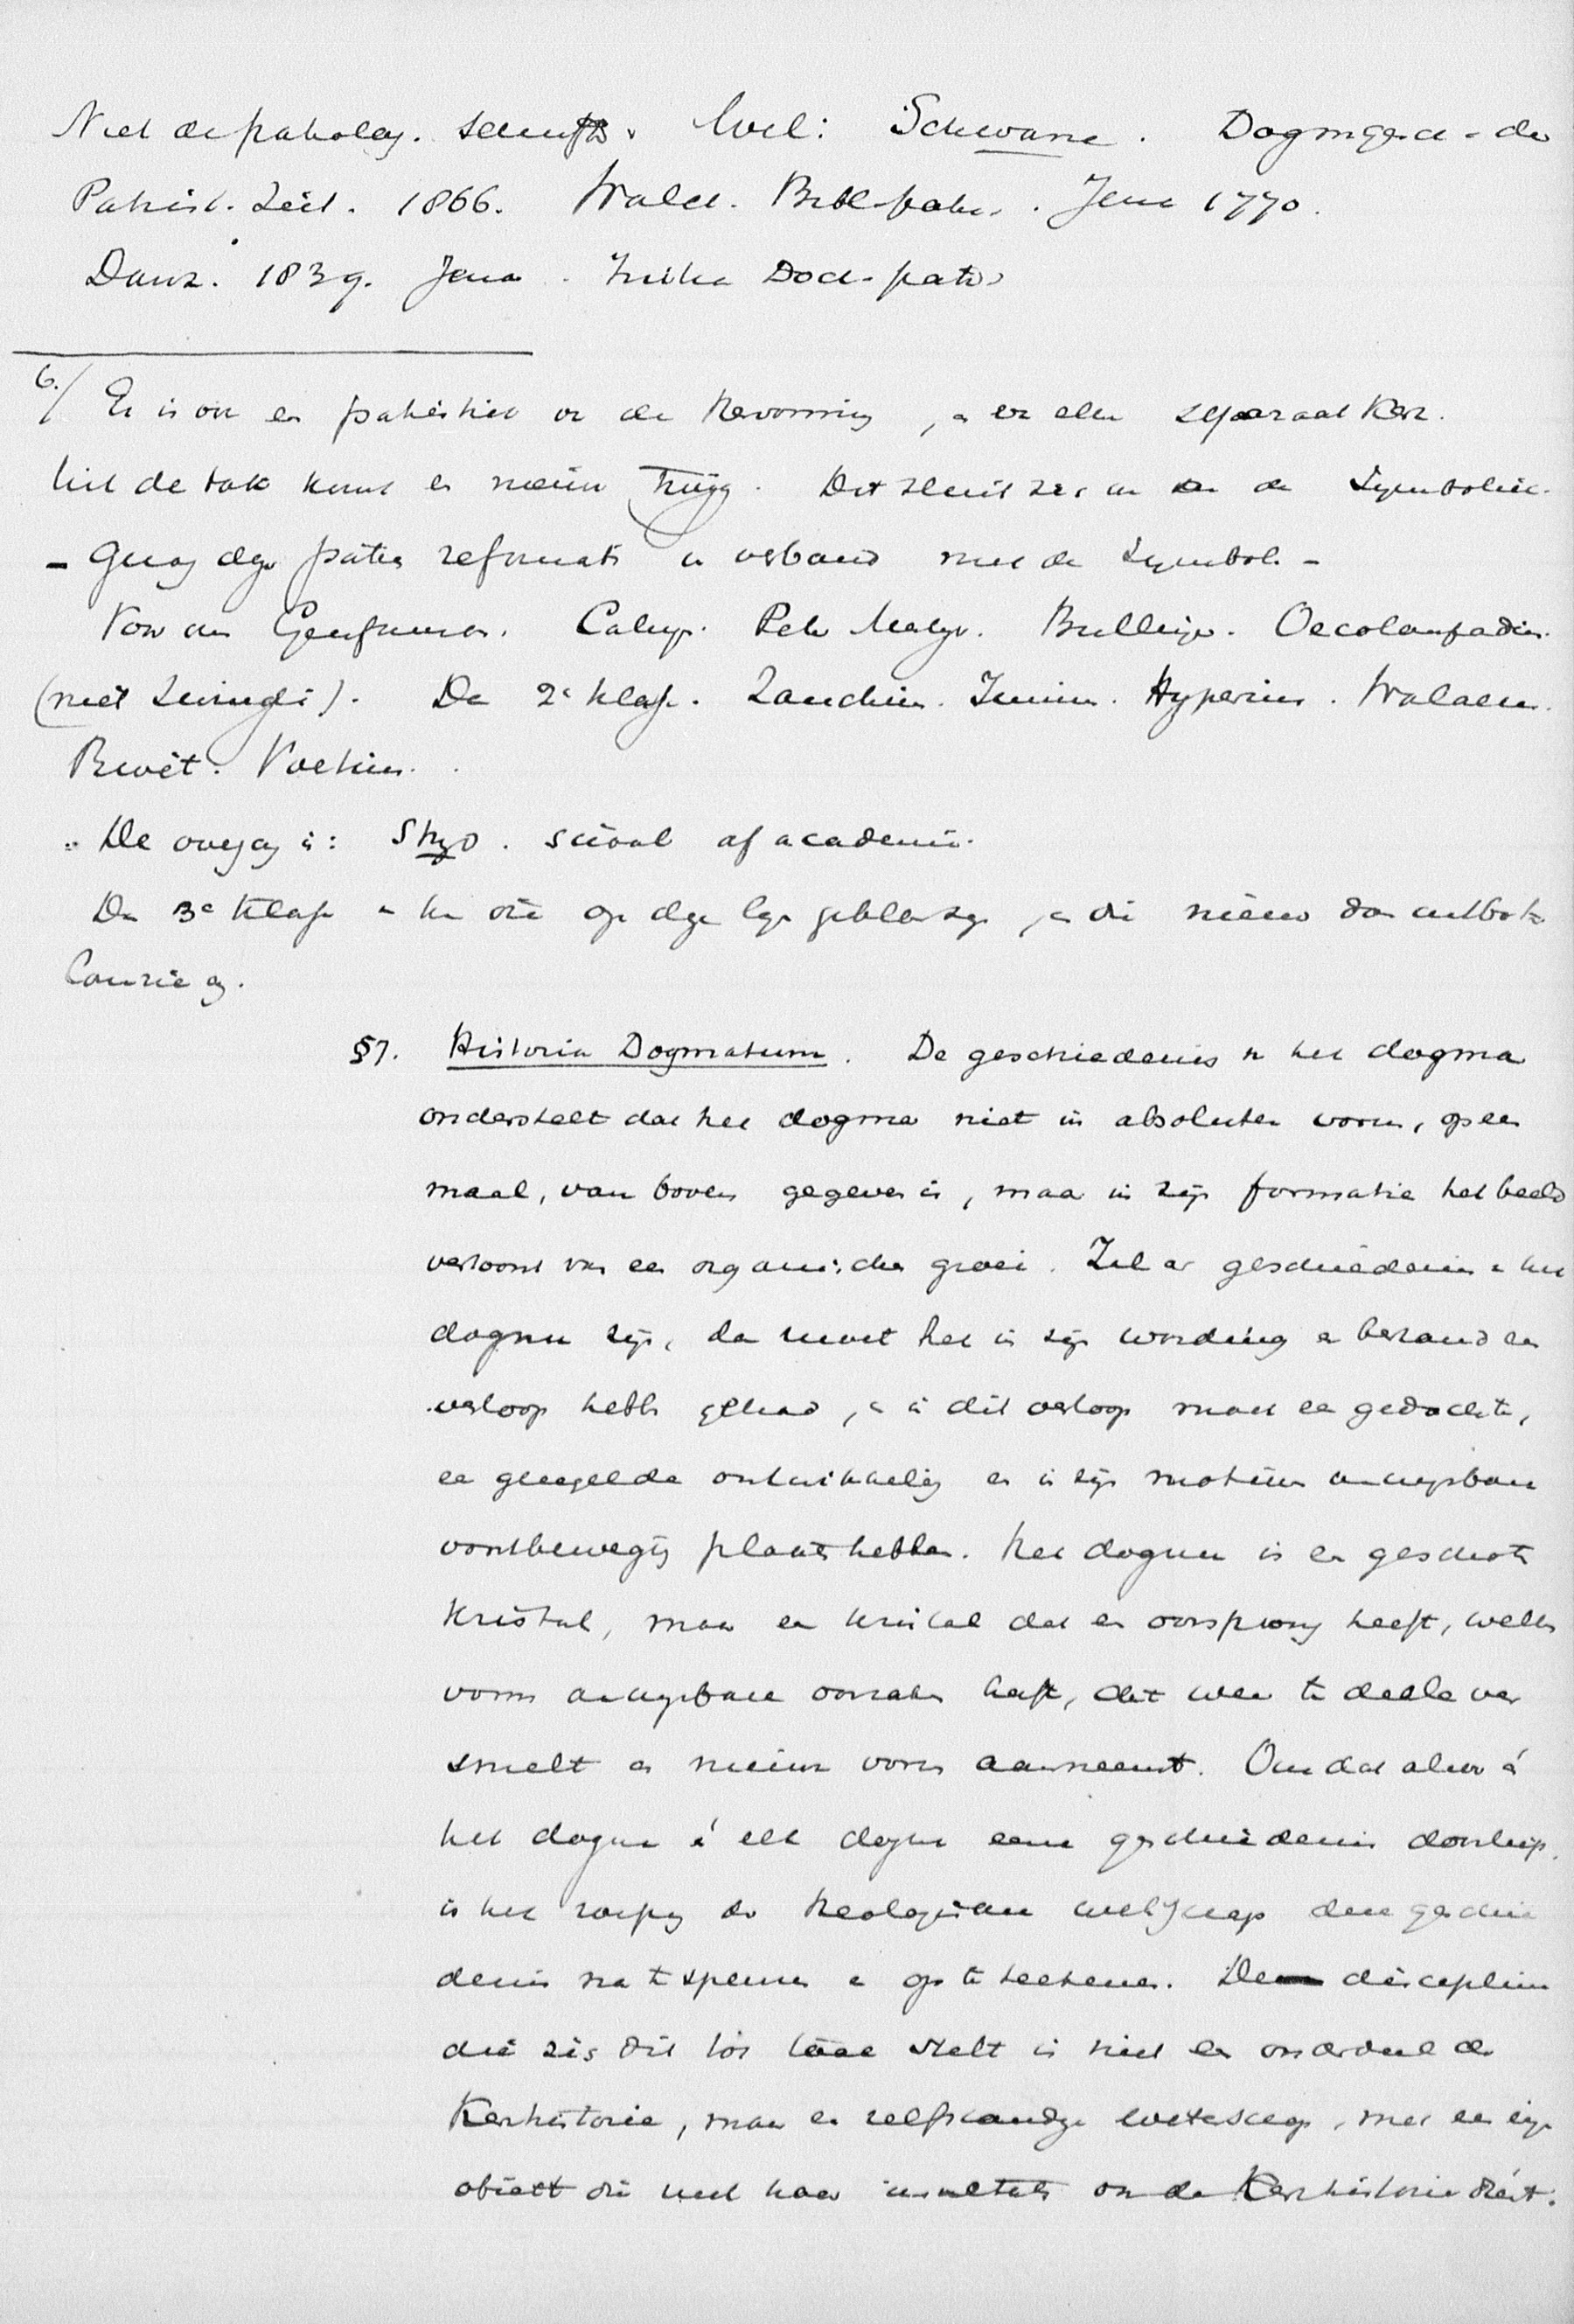 Niet de patrolog. Wel: Schwane. Dogmgesch. der
Patrist. Zeit. 1866. Walch. Bibl. patr. Jena 1770.
Danz. 1839. Jena. Initia Doct. patr.
6./ Er is ook een patristiek v. de Hervorming, en in elke separaat Kerk.
Uit de tak komt een nieuwe twijg. Dit sluit zich aan de Symboliek.
- patres reformati in verband met de Symbol. -
Voor ons Gereformeerden. Calvijn. Petr. Martyr. Bullinger. Oecolampadius.
(niet Zwingli). De 2e klasse. Zanchius. Junius. Hyperius. Walaeus.
Rivet. Voetius.
De overgang is: school of academie.
De 3e klasse op deze lijn, en die nieuw

§7. Historia Dogmatum. De geschiedenis v. het dogma
onderstelt dat het dogma niet in absoluten vorm, op een
maal, van boven gegeven is, maar in zijn formatie het beeld
vertoont van een organischen groei. Zal er geschiedenis v. het
dogma zijn, dan moet het in zijn wording en bestand een
verloop hebben gehad, en in dit verloop moet een gedachte,
een geregelde ontwikkeling en in zijn motieven aanwijsbare
voortbeweging plaats hebben. Het dogma is een geschoten
kristal, maar een kristal dat een oorsprong heeft, welks
vorm aanwijsbare oorzaken heeft, dat weer ten deele ver
smelt en nieuwen vorm aanneemt. Omdat alzoo én
het dogma én elk dogma eene geschiedenis doorliep,
is het roeping der theologische wetenschap deze geschie
denis na te speuren en op te teekenen. De discipline
die zich dit tot taak stelt is niet een onderdeel der
Kerkhistorie, maar een zelfstandige wetenschap, met een eigen
object die met haar resultaten ook de Kerkhistorie dient.